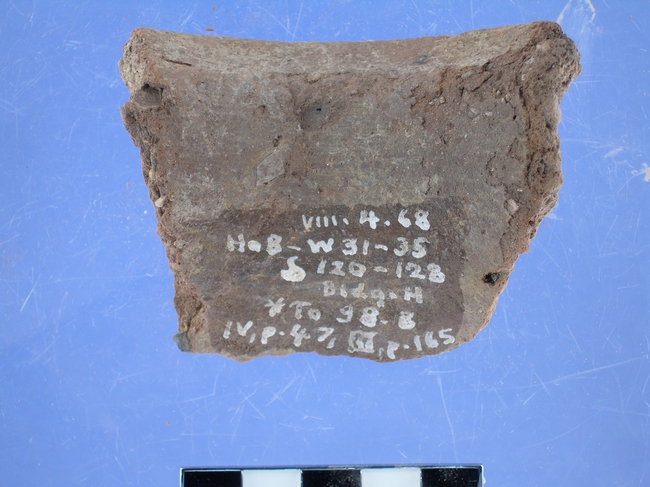 VIII. 4. 68
HoB - W 31 - 35
S 120 - 128
Bldg. H
* To 98.8
IV, p. 47, VII, p. 165